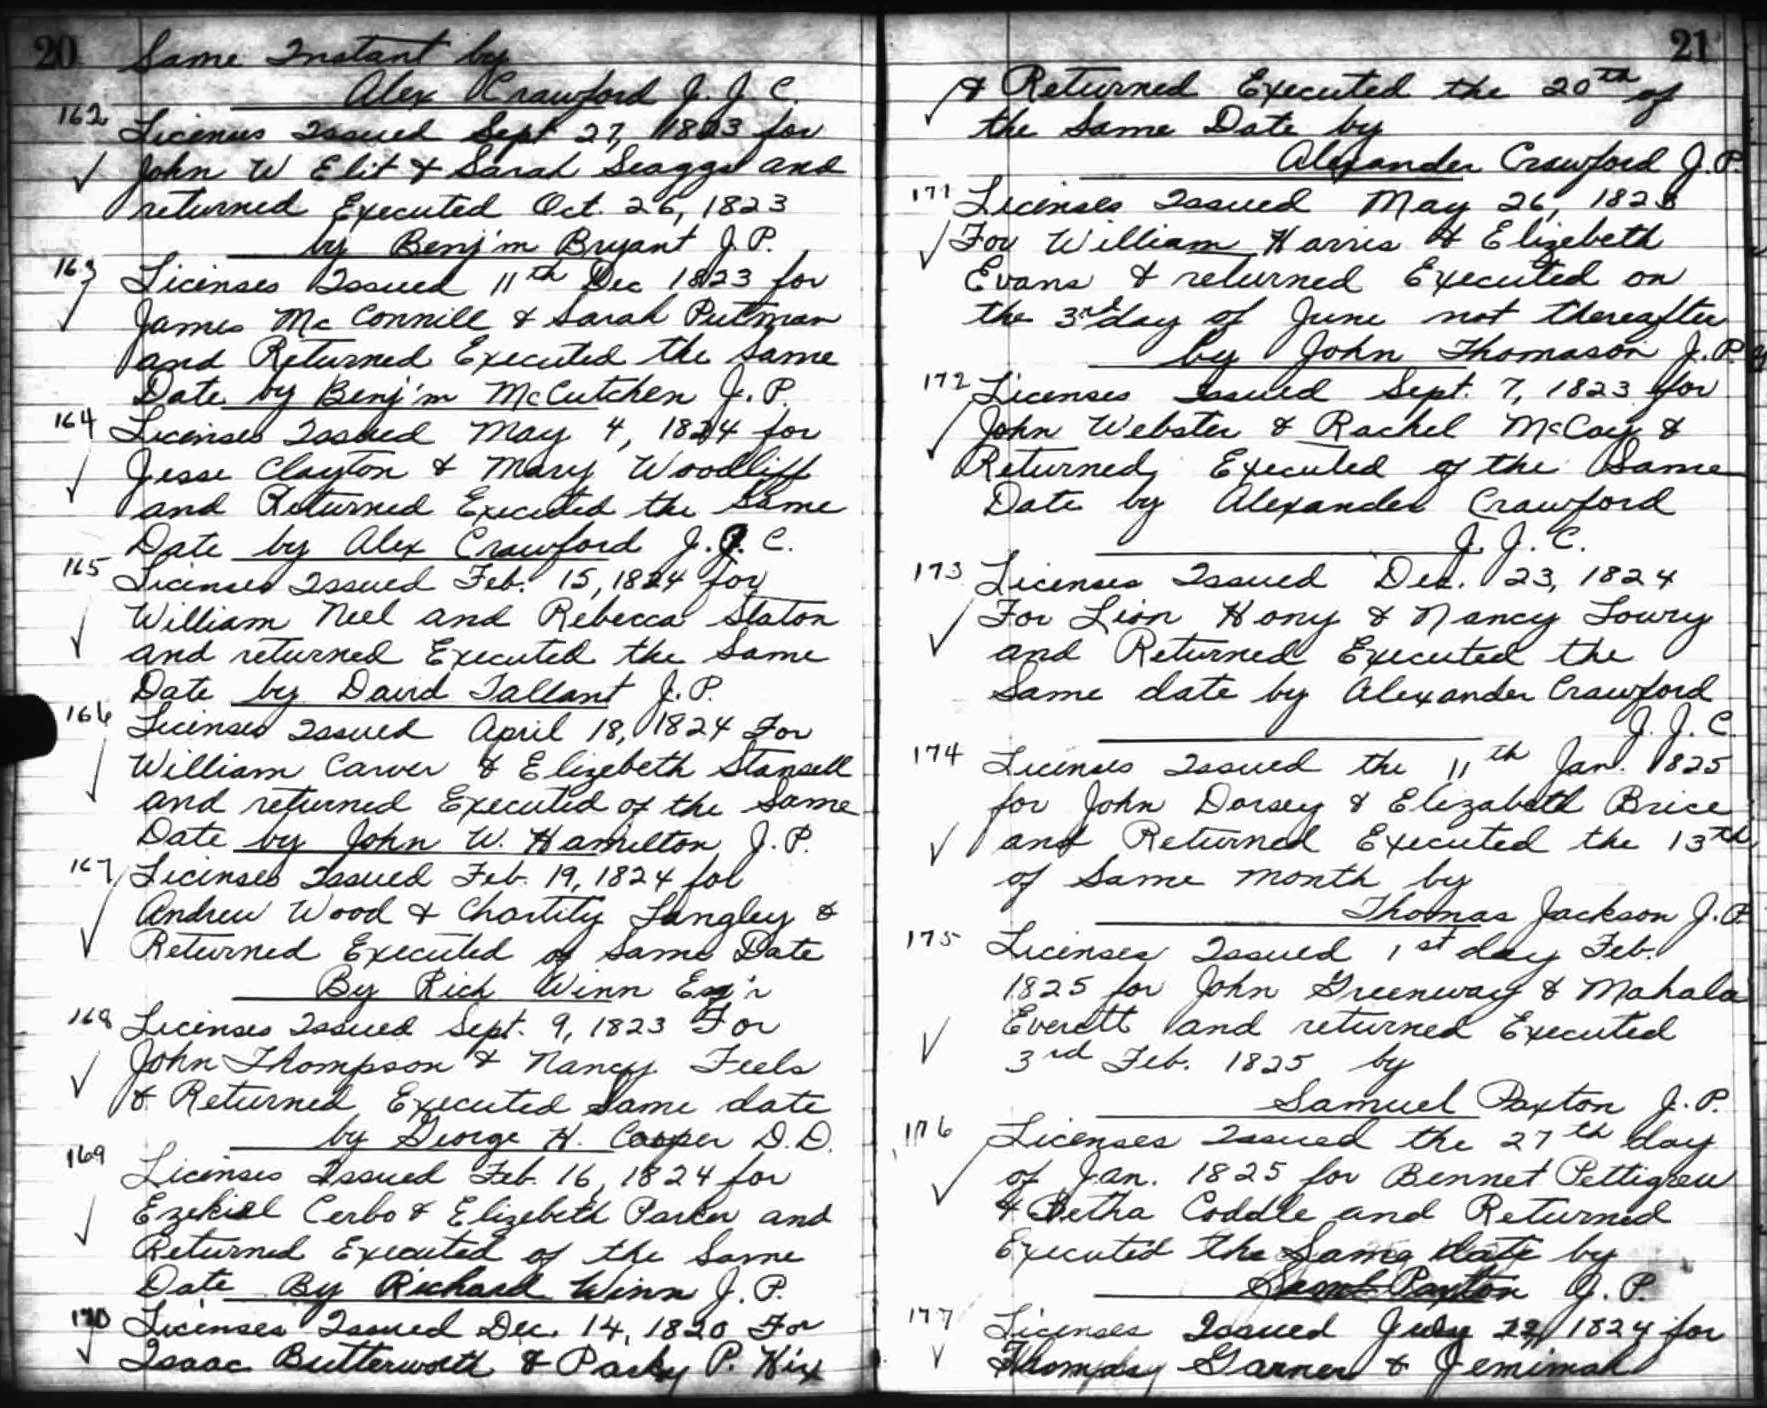 20
Same Instant by
Alex Crawford J. J. C.
162
Licenus Issued Sept 27, 1823 for
John W Elit & Sarah Scaggs and
returned Executed Oct. 26, 1823
by Benj'm Bryant J. P.
163
Licenses Issued 11th Dec 1823 for
James Mc Connill & Sarah Putman
and Returned Executed the Same
Date by Benj'm McCutchen J. P.
164
Licenses Issued May 4, 1824 for
Jesse Clayton & Mary Woodliff
and Returned Executed the Same
Date by Alex Crawford J. J. C.
165
Licenses Issued Feb. 15, 1824 for
William Neel and Rebecca Staton
and returned Executed the Same
Date by David Tallant J. P.
166
Licenses Issued April 18, 1824 For
William Carver & Elizebeth Stansell
and returned Executed of the Same
Date by John W. Hamilton J. P.
167
Licenses Issued Feb. 19, 1824 for
Andrew Wood & Chartity Langley &
Returned Executed of Same Date
By Rich Winn Esq'r
168
Licenses Issued Sept. 9, 1823 For
John Thompson & Nancy Feels
& Returned Executed Same date
by George H. Cooper D. D.
169
Licenses Issued Feb. 16, 1824 for
Ezekiel Cerbo & Elizebeth Parker and
Returned Executed of the Same
Date By Richard Winn J. P.
170
Licenses Issued Dec. 14, 1820 For
Isaac Butterworth & Patsy P. Hix
21
& Returned Executed the 20th of
the Same Date by
Alexander Crawford J. P.
171
Licenses Issued May 26, 1823
For William Harris & Elizebeth
Evans & returned Executed on
the 3rd day of June not thereafter
by John Thomason J. P.
172
Licenses Issued Sept. 7, 1823 for
John Webster & Rachel McCoy &
Returned Executed of the Same
Date by Alexander Crawford
J. J. C.
173
Licenses Issued Dec. 23, 1824
For Lion Hony & Nancy Lowry
and Returned Executed the
Same date by Alexander Crawford
J. J. C.
174
Licenses Issued the 11th Jan. 1825
for John Dorsey & Elizabeth Brice
and Returned Executed the 13th
of Same month by
Thomas Jackson J. P.
175
Licenses Issued 1st day Feb.
1825 for John Greenway & Mahala
Everett and returned Executed
3rd Feb. 1825 by
Samuel Paxton J. P.
176
Licenses Issued the 27th day
of Jan. 1825 for Bennet Pettigrew
& Betha Coddle and Returned
Executed the Same date by
Saml Paxton J. P.
177
Licenses Issued July 22, 1824 for
Garner & Jemimah